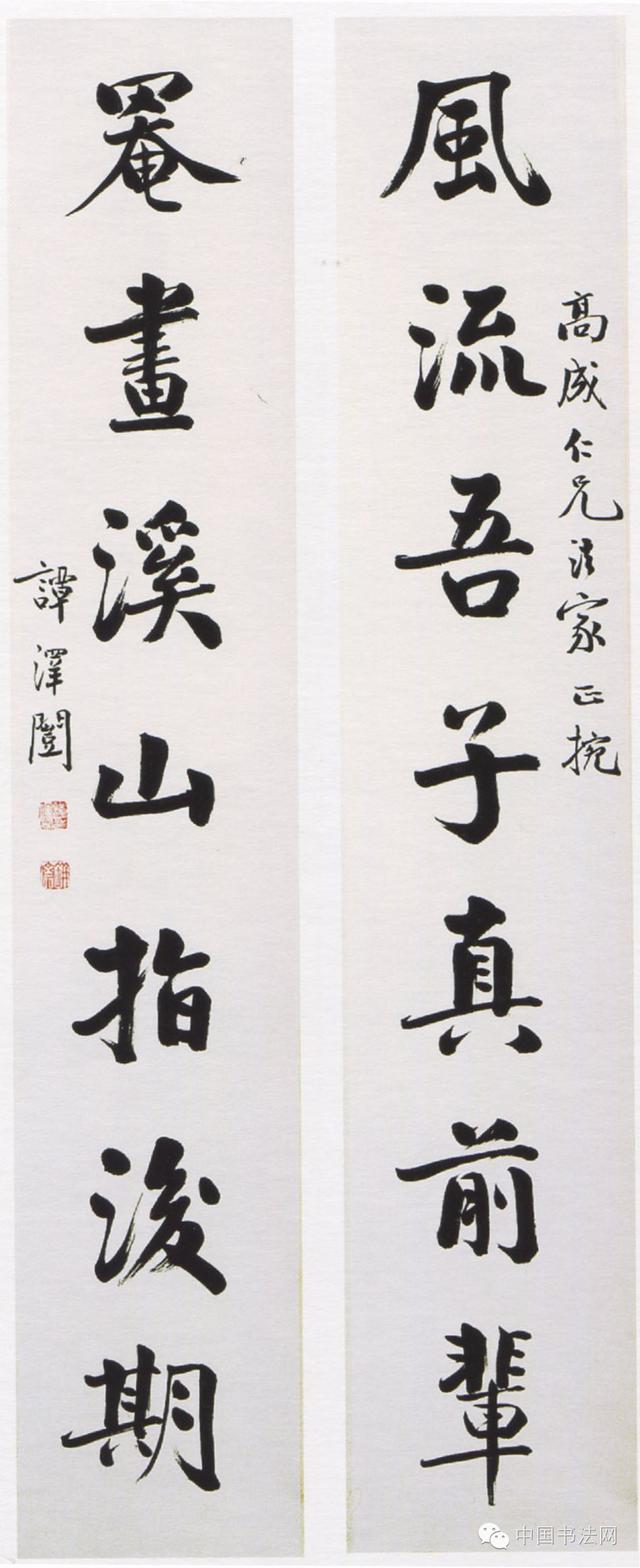 高成仁兄法家正捥
風流吾子真前輩
罨畫溪山指後期
譚澤闓
中国书法网